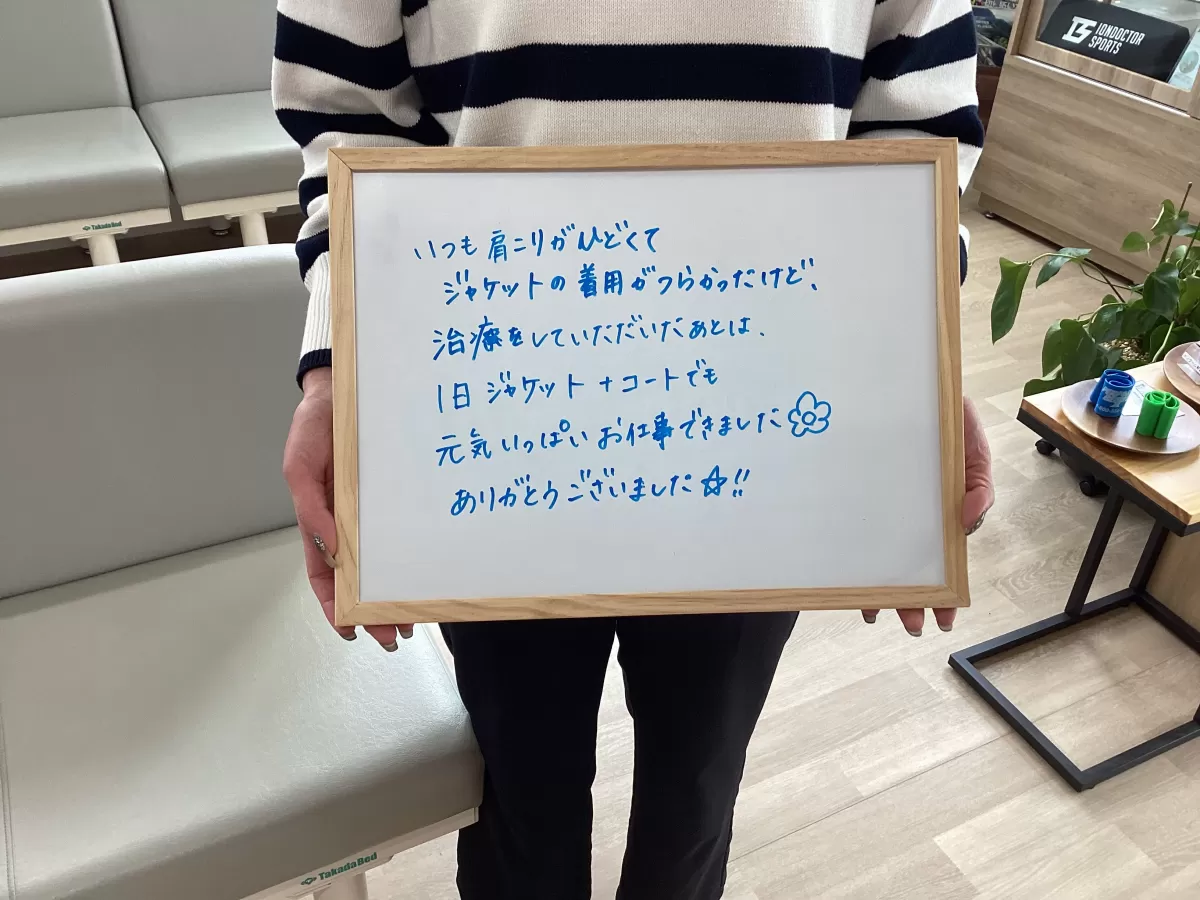 IONDOCTOR
SPORTS
TakadaBed
いつも肩こりがひどくて
ジャケットの着用がつらかっただけど、
治療をしていただいたあとは、
1日ジャケット+コートでも
元気いっぱいお仕事できました
ありがとうございました☆!!
TakadaBed